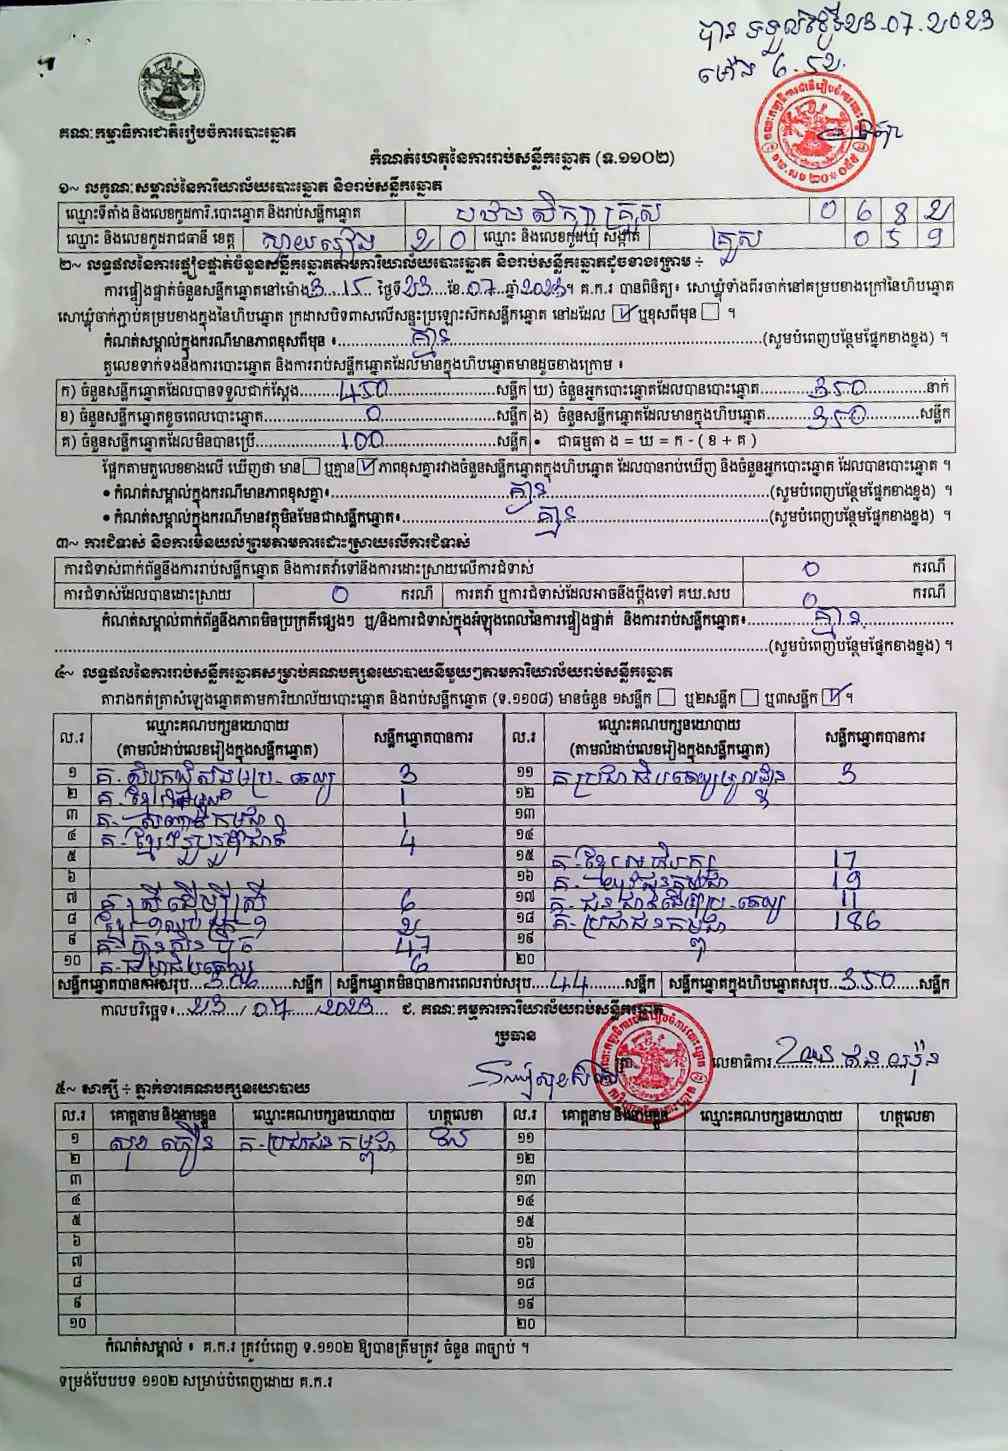 បាន ទទួលថ្ងៃទី២៣.07.២០២៣
ម៉ោង
គណៈកម្មាធិការជាតិរៀបចំការបោះឆ្នោត
កំណត់ហេតុនៃការរាប់សន្លឹកឆ្នោត (ទ.១១០២)
១~ លក្ខណៈសម្គាល់នៃការិយាល័យបោះឆ្នោត និងរាប់សន្លឹកឆ្នោត
ឈ្មោះទីតាំង និងលេខកូដការិ.បោះឆ្នោត និងរាប់សន្លឹកឆ្នោត បឋមសិក្សាគ្រួស 0 6 8 2
ឈ្មោះ និងលេខកូដរាជធានី ខេត្ត ស្វាយរៀង 2 0 ឈ្មោះ និងលេខកូដឃុំ សង្កាត់ គ្រួស 0 5 9
២~ លទ្ធផលនៃការផ្ទៀងផ្ទាត់ចំនួនសន្លឹកឆ្នោតតាមការិយាល័យបោះឆ្នោត និងរាប់សន្លឹកឆ្នោតដូចខាងក្រោម ÷
ការផ្ទៀងផ្ទាត់ចំនួនសន្លឹកឆ្នោតនៅម៉ោង 3 . 15 ថ្ងៃទី 23 ខែ 07 ឆ្នាំ 2023។ គ.ក.រ បានពិនិត្យ៖ សោឃ្លុំទាំងពីរចាក់នៅគម្របខាងក្រៅនៃហិបឆ្នោត
សោឃ្លុំចាក់ភ្ជាប់គម្របខាងក្នុងនៃហិបឆ្នោត ក្រដាសបិទពាសលើសន្ទះប្រឡោះសឹកសន្លឹកឆ្នោត នៅដដែល ☑ ឬខុសពីមុន ☐ ។
កំណត់សម្គាល់ក្នុងករណីមានភាពខុសពីមុន ៖ គ្មាន (សូមបំពេញបន្ថែមផ្នែកខាងខ្នង) ។
តួលេខទាក់ទងនឹងការបោះឆ្នោត និងការរាប់សន្លឹកឆ្នោតដែលមានក្នុងហិបឆ្នោតមានដូចខាងក្រោម ៖
ក) ចំនួនសន្លឹកឆ្នោតដែលបានទទួលជាក់ស្តែង 450 សន្លឹក ឃ) ចំនួនអ្នកបោះឆ្នោតដែលបានបោះឆ្នោត 350 នាក់
ខ) ចំនួនសន្លឹកឆ្នោតខូចពេលបោះឆ្នោត 0 សន្លឹក ង) ចំនួនសន្លឹកឆ្នោតដែលមានក្នុងហិបឆ្នោត 350 សន្លឹក
គ) ចំនួនសន្លឹកឆ្នោតដែលមិនបានប្រើ 100 សន្លឹក • ជាធម្មតា ង = ឃ = ក - ( ខ + គ )
ផ្អែកតាមតួលេខខាងលើ ឃើញថា មាន ☐ ឬគ្មាន ☑ ភាពខុសគ្នារវាងចំនួនសន្លឹកឆ្នោតក្នុងហិបឆ្នោត ដែលបានរាប់ឃើញ និងចំនួនអ្នកបោះឆ្នោត ដែលបានបោះឆ្នោត ។
• កំណត់សម្គាល់ក្នុងករណីមានភាពខុសគ្នា៖ គ្មាន (សូមបំពេញបន្ថែមផ្នែកខាងខ្នង) ។
• កំណត់សម្គាល់ក្នុងករណីមានវត្ថុមិនមែនជាសន្លឹកឆ្នោត៖ គ្មាន (សូមបំពេញបន្ថែមផ្នែកខាងខ្នង) ។
៣~ ការជំទាស់ និងការមិនយល់ព្រមតាមការដោះស្រាយលើការជំទាស់
ការជំទាស់ពាក់ព័ន្ធនឹងការរាប់សន្លឹកឆ្នោត និងការតវ៉ាទៅនឹងការដោះស្រាយលើការជំទាស់ 0 ករណី
ការជំទាស់ដែលបានដោះស្រាយ 0 ករណី ការតវ៉ា ឬការជំទាស់ដែលអាចនឹងប្តឹងទៅ គឃ.សប 0 ករណី
កំណត់សម្គាល់ពាក់ព័ន្ធនឹងភាពមិនប្រក្រតីផ្សេងៗ ឬ/និងការជំទាស់ក្នុងអំឡុងពេលនៃការផ្ទៀងផ្ទាត់ និងការរាប់សន្លឹកឆ្នោត៖ គ្មាន
(សូមបំពេញបន្ថែមផ្នែកខាងខ្នង) ។
៤~ លទ្ធផលនៃការរាប់សន្លឹកឆ្នោតសម្រាប់គណបក្សនយោបាយនីមួយៗតាមការិយាល័យរាប់សន្លឹកឆ្នោត
តារាងកត់ត្រាសំឡេងឆ្នោតតាមការិយាល័យបោះឆ្នោត និងរាប់សន្លឹកឆ្នោត (ទ.១១០៨) មានចំនួន ១សន្លឹក ☐ ឬ២សន្លឹក ☐ ឬ៣សន្លឹក ☑ ។
ល.រ ឈ្មោះគណបក្សនយោបាយ (តាមលំដាប់លេខរៀងក្នុងសន្លឹកឆ្នោត) សន្លឹកឆ្នោតបានការ ល.រ ឈ្មោះគណបក្សនយោបាយ (តាមលំដាប់លេខរៀងក្នុងសន្លឹកឆ្នោត) សន្លឹកឆ្នោតបានការ
១ 3 ១១ 3
២ 1 ១២
៣ 1 ១៣
៤ គ-ខ្មែររួបរួមជាតិ 4 ១៤
៥ ១៥ 17
៦ ១៦ គ-យុវជនកម្ពុជា 19
៧ គ-ស្រីដើម្បីស្រី 6 ១៧ 11
៨ 2 ១៨ គ-ប្រជាជនកម្ពុជា 186
៩ 47 ១៩
១០ 6 ២០
សន្លឹកឆ្នោតបានការសរុប 306 សន្លឹក សន្លឹកឆ្នោតមិនបានការពេលរាប់សរុប 44 សន្លឹក សន្លឹកឆ្នោតក្នុងហិបឆ្នោតសរុប 350 សន្លឹក
កាលបរិច្ឆេទ៖ 23 / 07 / 2023 ជ. គណៈកម្មការការិយាល័យរាប់សន្លឹកឆ្នោត
ប្រធាន
លេខាធិការ
៥~ សាក្សី ÷ ភ្នាក់ងារគណបក្សនយោបាយ
ល.រ គោត្តនាម និងនាមខ្លួន ឈ្មោះគណបក្សនយោបាយ ហត្ថលេខា ល.រ គោត្តនាម និងនាមខ្លួន ឈ្មោះគណបក្សនយោបាយ ហត្ថលេខា
១ គ-ប្រជាជនកម្ពុជា ១១
២ ១២
៣ ១៣
៤ ១៤
៥ ១៥
៦ ១៦
៧ ១៧
៨ ១៨
៩ ១៩
១០ ២០
កំណត់សម្គាល់ ៖ គ.ក.រ ត្រូវបំពេញ ទ.១១០២ ឱ្យបានត្រឹមត្រូវ ចំនួន ៣ច្បាប់ ។
ទម្រង់បែបបទ ១១០២ សម្រាប់បំពេញដោយ គ.ក.រ